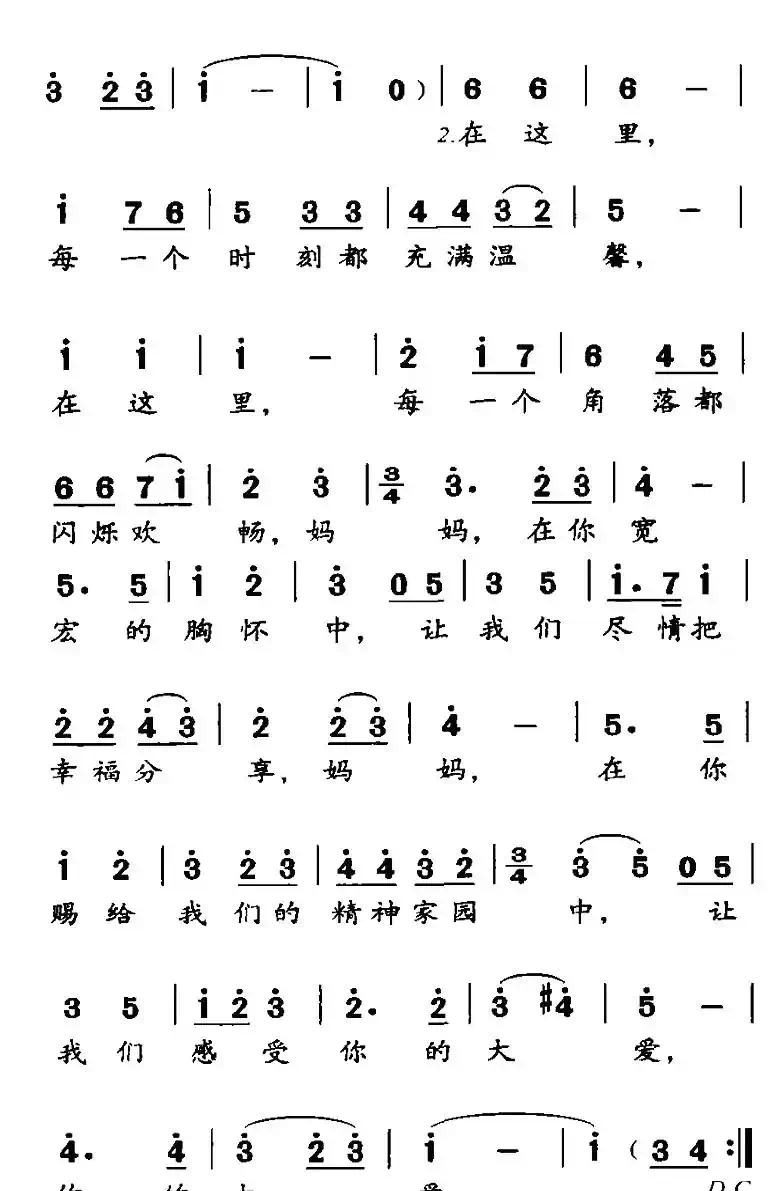 3 2 3 | 1 — | 1 0 ) | 6 6 | 6 — |
2.在 这 里，
1 7 6 | 5 3 3 | 4 4 3 2 | 5 — |
每 一 个 时 刻 都 充 满 温 馨，
1 1 | 1 — | 2 1 7 | 6 4 5 |
在 这 里， 每 一 个 角 落 都
6 6 7 1 | 2 3 | 3/4 3. 2 3 | 4 — |
闪 烁 欢 畅，妈 妈，在 你 宽
5. 5 | 1 2 | 3 0 5 | 3 5 | 1. 7 1 |
宏 的 胸 怀 中，让 我 们 尽 情 把
2 2 4 3 | 2 2 3 | 4 — | 5. 5 |
幸 福 分 享，妈 妈， 在 你
1 2 | 3 2 3 | 4 4 3 2 | 3/4 3 5 0 5 |
赐 给 我 们 的 精 神 家 园 中， 让
3 5 | 1 2 3 | 2. 2 | 3 #4 | 5 — |
我 们 感 受 你 的 大 爱，
4. 4 | 3 2 3 | 1 — | 1 ( 3 4 :||
D.C